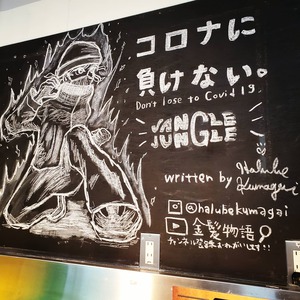 コロナに
負けない。
Don't lose to Covid 19
JUNGLE
JUNGLE
written by Halube Kumagai
@halubekumagai
金髪物語
チャンネル登録おねがいします!!